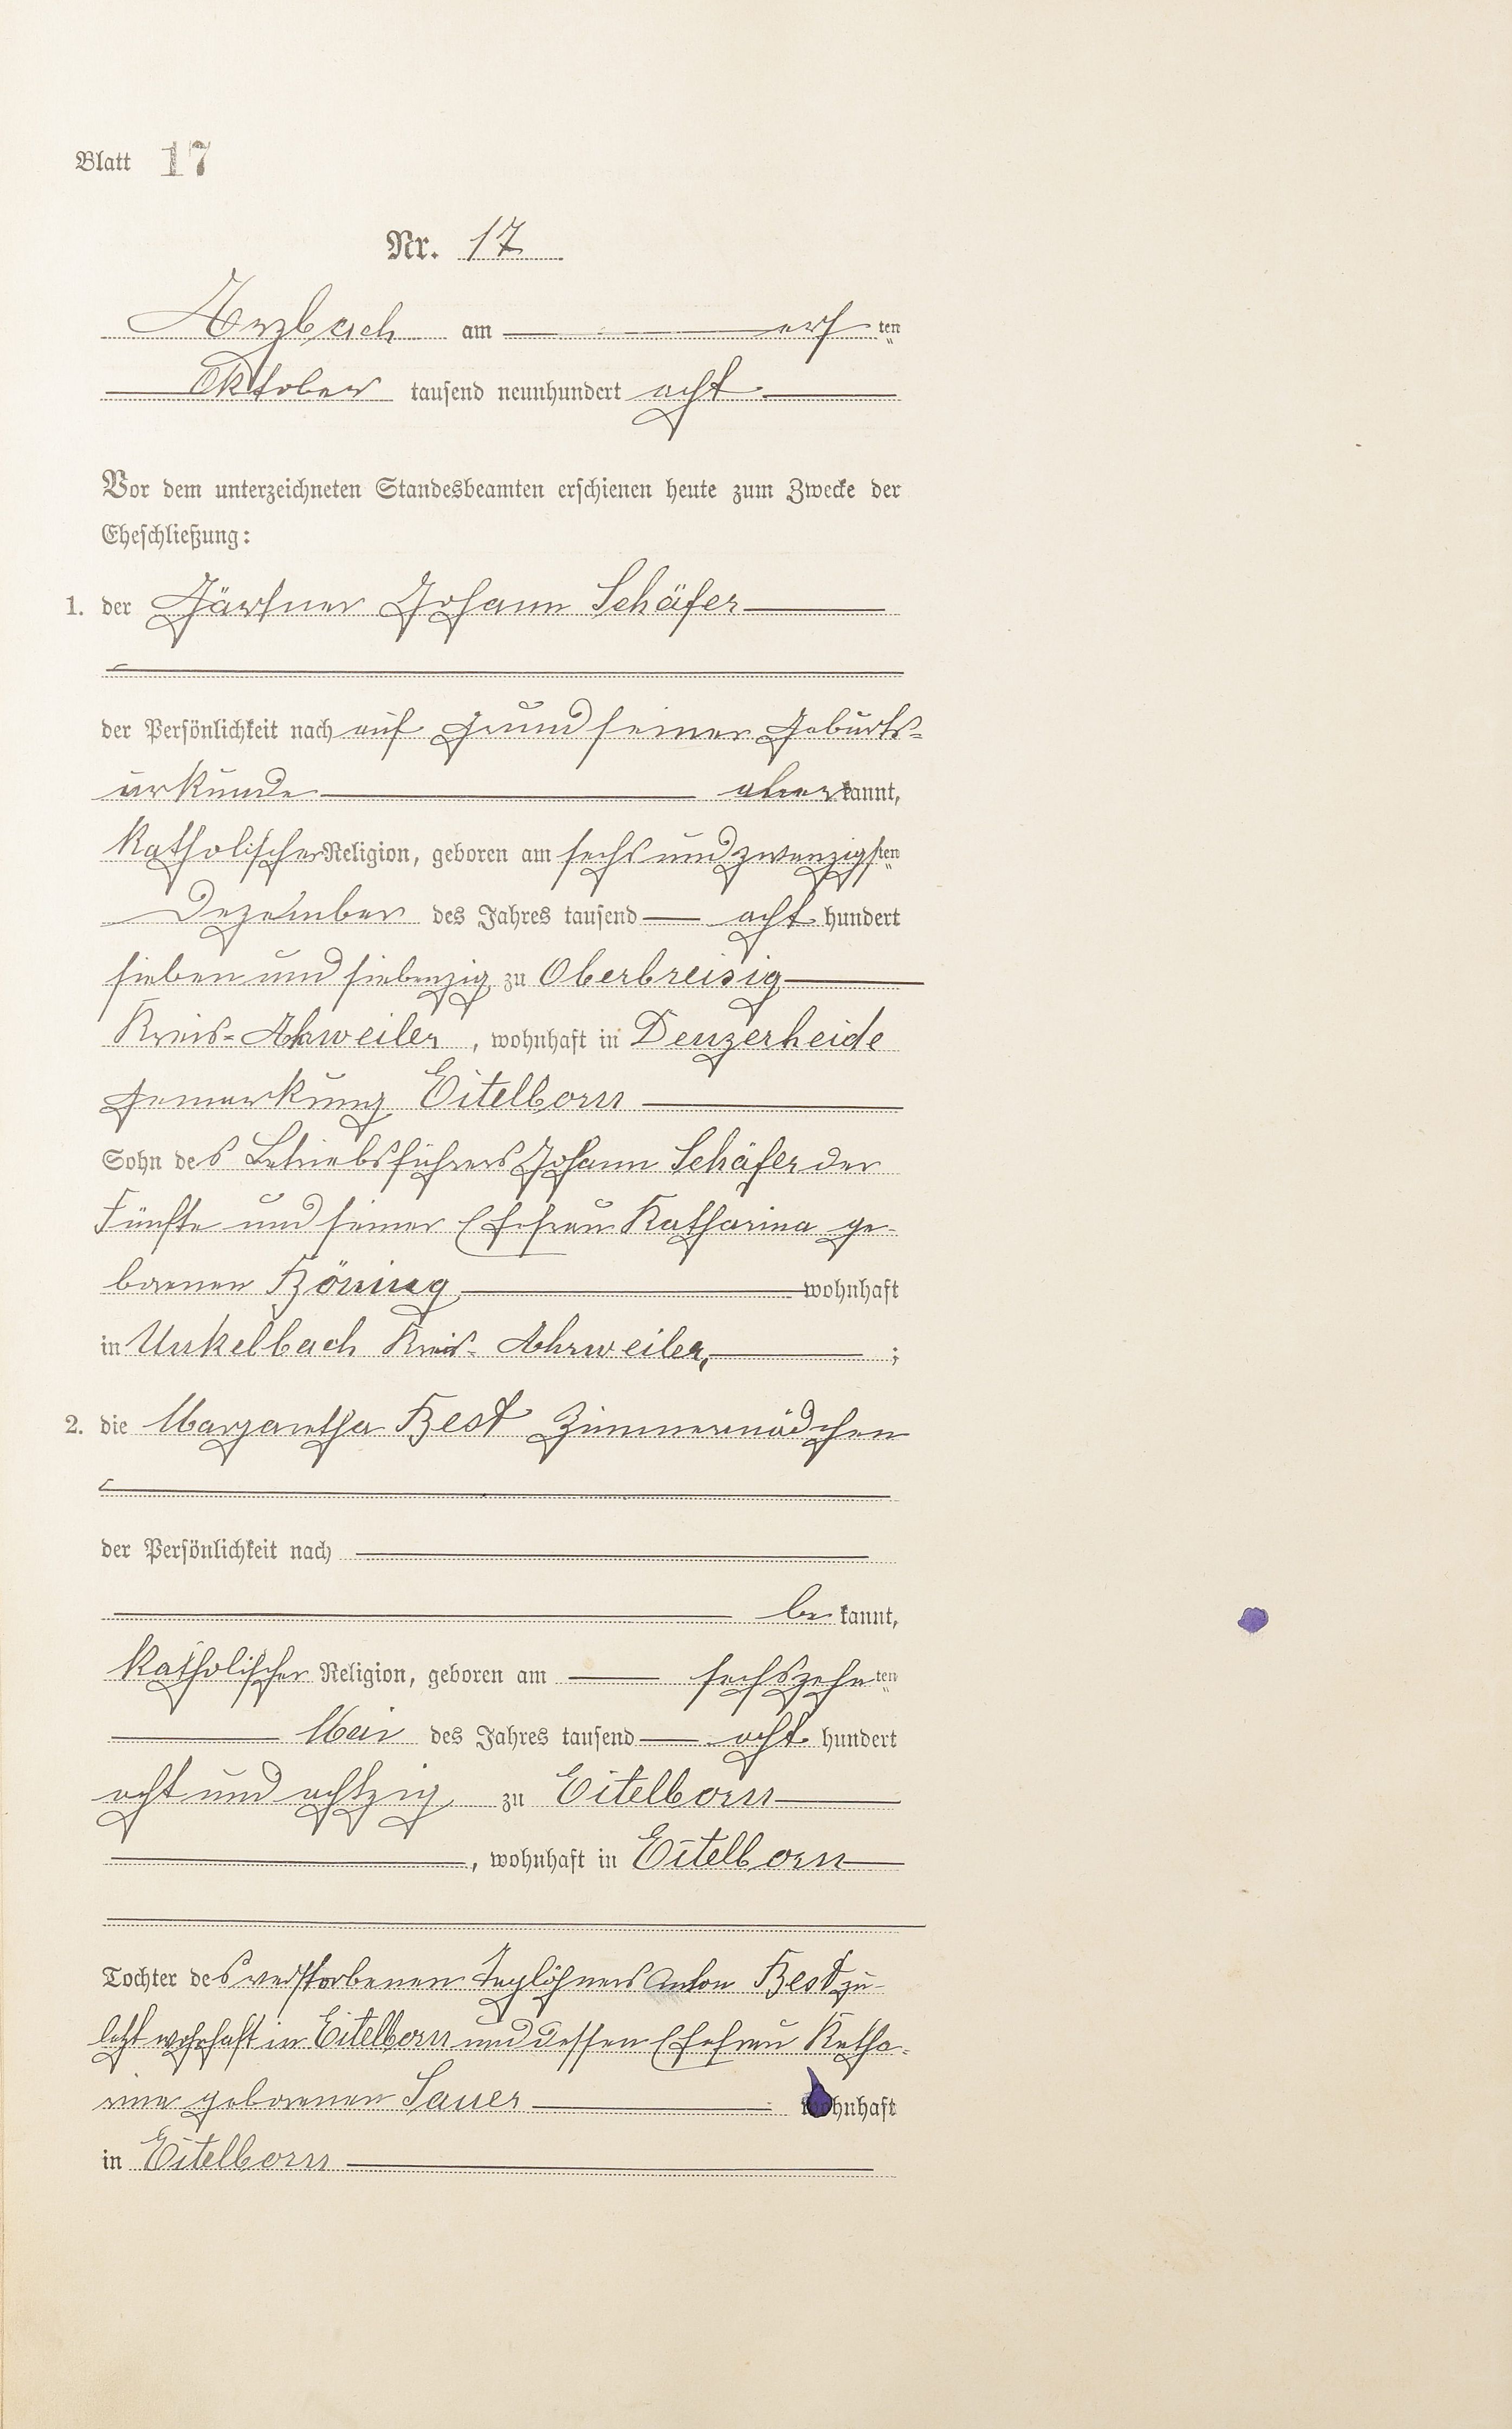 Blatt 17
Nr. 17
Arzbach am ersten
Oktober tausend neunhundert acht
Vor dem unterzeichneten Standesbeamten erschienen heute zum Zwecke der
Eheschließung:
1. der Gärtner Johann Schäfer
der Persönlichkeit nach auf Grund seiner Geburts-
urkunde kannt,
katholischer Religion, geboren am sechs und zwanzigsten
Dezember des Jahres tausend acht hundert
sieben und siebenzig zu Oberbreisig
Kreis-Ahrweiler, wohnhaft in Denzerheide
Gemarkung Eitelborn
Sohn des Betriebsführers Johann Schäfer der
Fünfte und seiner Ehefrau Katharina ge-
borenen Böning wohnhaft
in Unkelbach Kreis-Ahrweiler, ;
2. die Margaretha Best Zimmermädchen
der Persönlichkeit nach
be kannt,
katholischer Religion, geboren am sechszehnten
Mai des Jahres tausend acht hundert
acht und achtzig zu Eitelborn
, wohnhaft in Eitelborn
Tochter des verstorbenen Taglöhners Anton Best zu-
letzt wohnhaft in Eitelborn und dessen Ehefrau Katha-
rina geborenen Sauer wohnhaft
in Eitelborn